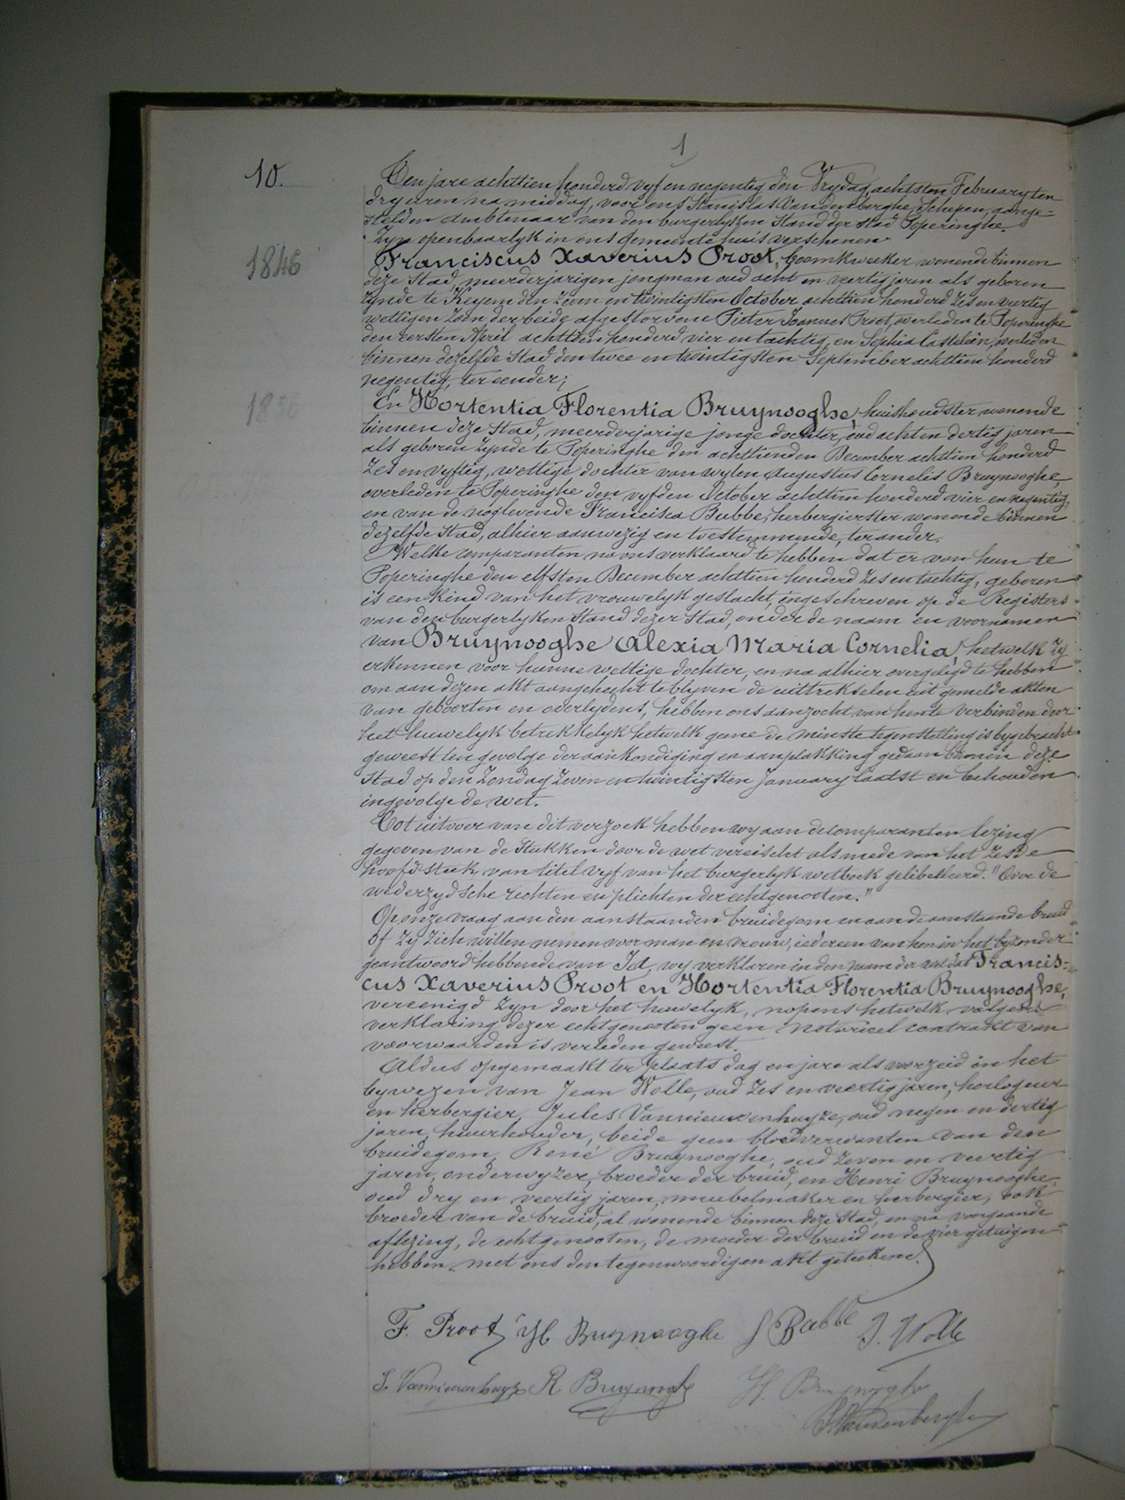 1
10.
Ten jare achttien honderd vyf en negentig den Vrydag achtsten February ten
dry uren na middag, voor ons Stanislas Vandenberghe, Schepen, aange=
stelden ambtenaar van den burgerlyken Stand der stad Poperinghe.
Zyn openbaarlyk in ons gemeentehuis verschenen
1846
Franciscus Xaverius Proot, boomkweeker wonende binnen
deze stad, meerderjarigen jongman oud acht en veertig jaren als geboren
zynde te Keyem den zeven en twintigsten October achttien honderd zes en veertig
wettigen zoon der beide afgestorvene Pieter Joannes Proot, overleden te Poperinghe
den eersten April achttien honderd vier en tachtig, en Sophia Castelein, overleden
binnen dezelfde stad den twee en twintigsten September achttien honderd
negentig, ter eender;
1856
En Hortentia Florentia Bruynooghe, huishoudster, wonende
binnen deze stad, meerderjarige jonge dochter, oud acht en dertig jaren
als geboren zynde te Poperinghe den achttienden December achttien honderd
zes en vyftig, wettige dochter van wylen Augustus Cornelis Bruynooghe,
overleden te Poperinghe den vyfden October achttien honderd vier en negentig,
en van de noglevende Francisca Bubbe, herbergierster wonende binnen
dezelfde stad, alhier aanwezig en toestemmende, ter ander.
Welke comparanten na ons verklaard te hebben dat er van hun te
Poperinghe den elfsten December achttien honderd zes en tachtig, geboren
is een kind van het vrouwelyk geslacht, ingeschreven op de Registers
van den burgerlyken Stand dezer stad, onder de naam en voornamen
van Bruynooghe Alexia Maria Cornelia, hetwelk zy
erkennen voor hunne wettige dochter, en na alhier overgelegd te hebben
om aan dezen akt aangehecht te blyven de uittrekselen uit gemelde akten
van geboorten en overlydens, hebben ons aanzocht van hen te verbinden door
het huwelyk betrekkelyk hetwelk geene de minste tegenstelling is bygebracht
geweest ten gevolge der aankondiging en aanplakking gedaan binnen deze
stad op den Zondag zeven en twintigsten January laatst en behouden
ingevolge de wet.
Tot uitvoer van dit verzoek hebben wy aan de comparanten lezing
gegeven van de Stukken door de wet vereischt alsmede van het zesde
hoofdstuk van titel vyf van het burgerlyk wetboek gelibelleerd: "Over de
wederzydsche rechten en plichten der echtgenooten."
Op onze vraag aan den aanstaanden bruidegom en aan de aanstaande bruid
of zy zich willen nemen voor man en vrouw, iedereen van hen in het byzonder
geantwoord hebbende van Ja, wy verklaren in den naam der wet dat Francis=
cus Xaverius Proot en Hortentia Florentia Bruynooghe,
vereenigd zyn door het huwelyk, nopens hetwelk volgens
verklaring dezer echtgenooten geen notarieel contrakt van
voorwaarden is verleden geweest.
Aldus opgemaakt ter plaats dag en jare als voorzeid in het
bywezen van Jean Wolle, oud zes en veertig jaren, horlogeur
en herbergier, Jules Vannieuwenhuyze, oud negen en dertig
jaren, huurhouder, beide geen bloedverwanten van den
bruidegom, René Bruynooghe, oud zeven en veertig
jaren, onderwyzer, broeder der bruid, en Henri Bruynooghe,
oud dry en veertig jaren, meubelmaker en herbergier, ook
broeder van de bruid, al wonende binnen deze stad, en na voorgaande
aflezing, de echtgenooten, de moeder der bruid en de vier getuigen
hebben met ons den tegenwoordigen akt geteekend.
F. Proot H Bruynooghe F Bubbe J. Wolle
J. Vannieuwenhuyze R Bruynooghe H. Bruynooghe
S. Vandenberghe